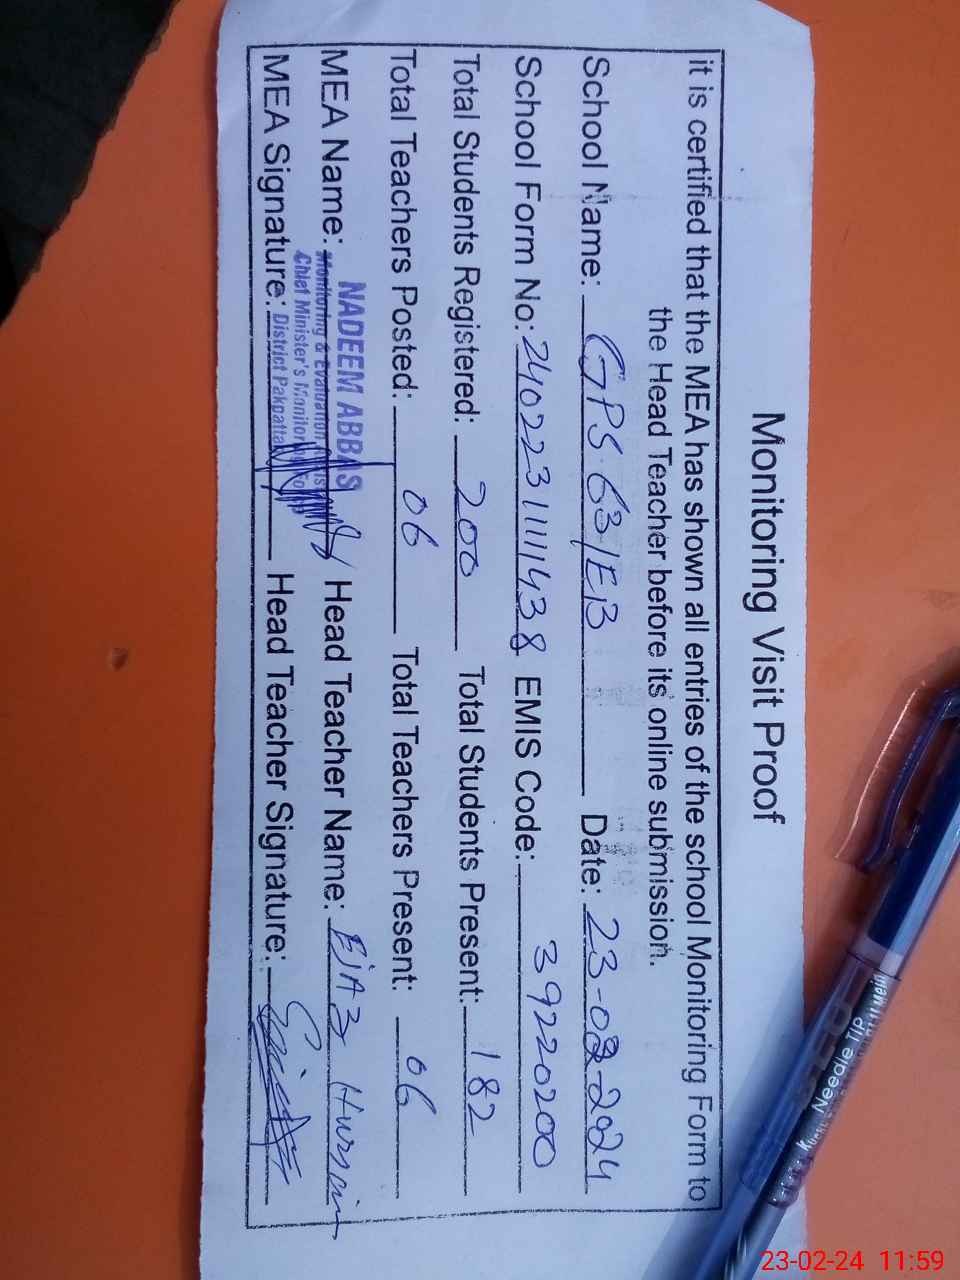 Monitoring Visit Proof
it is certified that the MEA has shown all entries of the school Monitoring Form to
the Head Teacher before its online submission.
School Name: GPS 63/EB Date: 23-02-2024
School Form No: 24022311111438 EMIS Code: 39220200
Total Students Registered: 200 Total Students Present: 182
Total Teachers Posted: 06 Total Teachers Present: 06
MEA Name: NADEEM ABBAS Head Teacher Name: EJAZ Hussain
Monitoring & Evaluation
Chief Minister's Monitoring
MEA Signature: District Pakpattan Head Teacher Signature:
Needle TIP
23-02-24 11:59